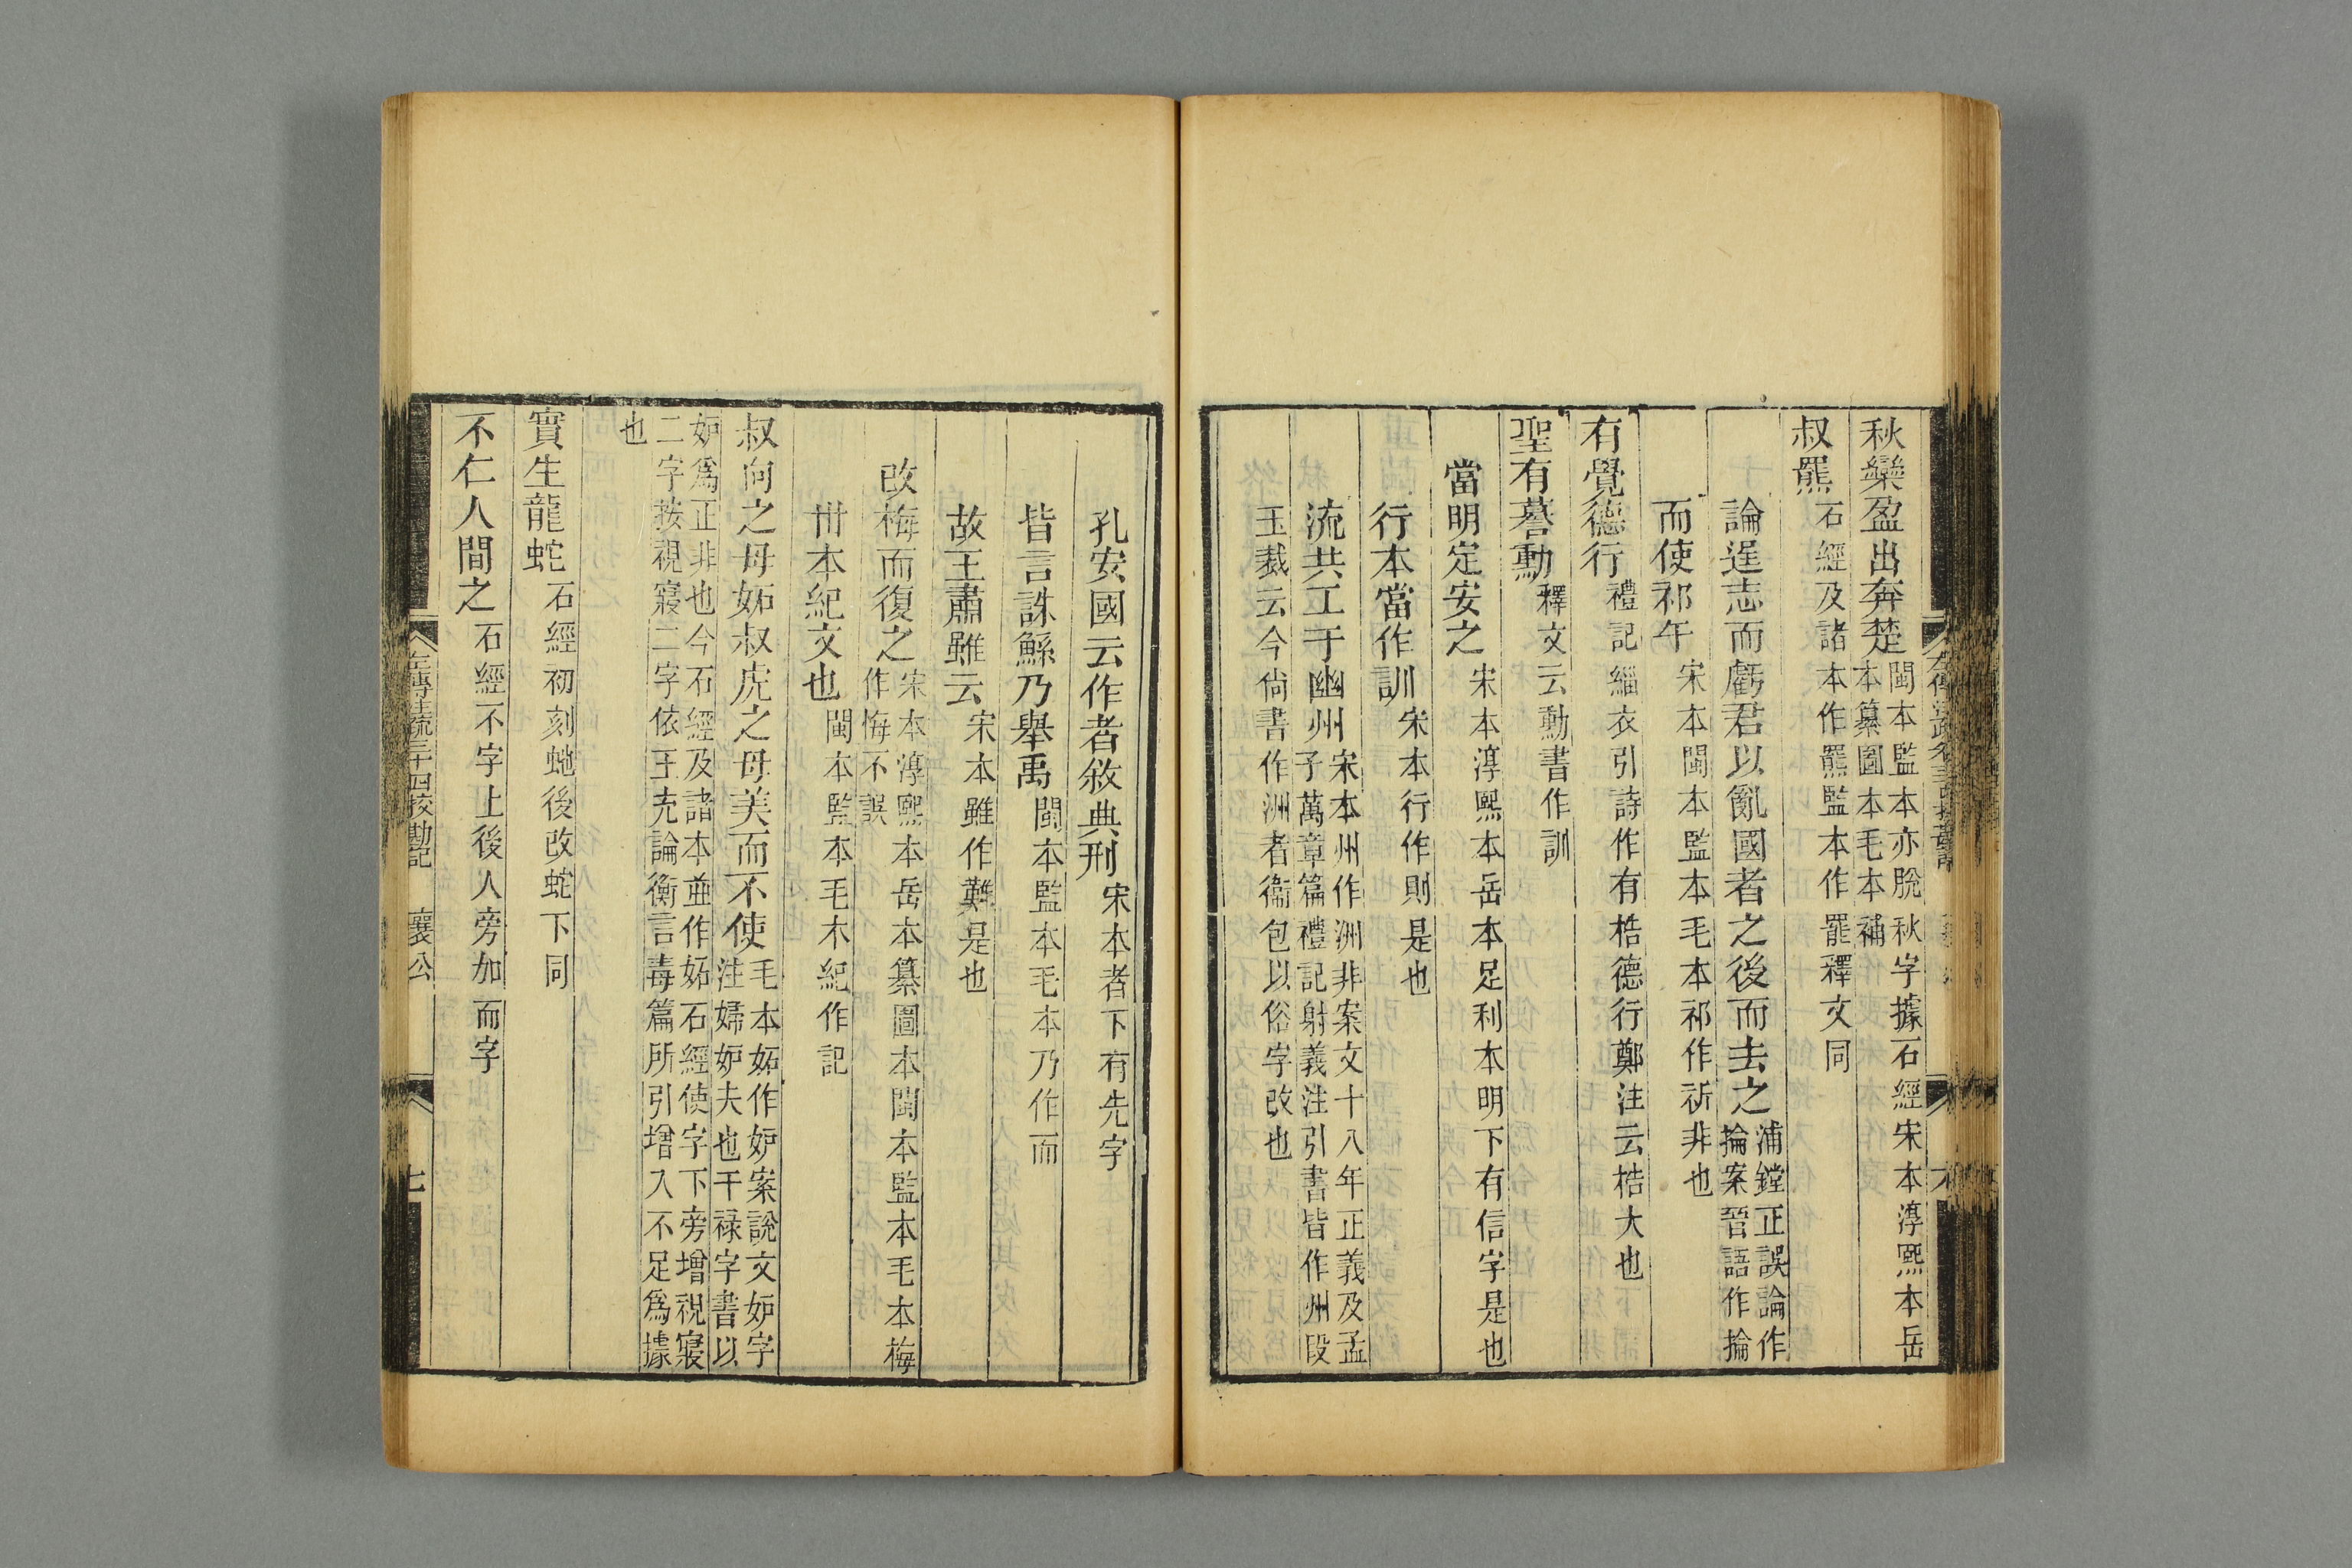 秋欒盈出奔楚閩本監本亦脫秋字據石經宋本淳熙本岳本纂圖本毛本補
叔羆石經及諸本作羆監本作罷釋文同
論逞志而虧君以亂國者之後而去之浦鏜正誤論作掄案晉語作掄
而使祁午宋本閩本監本毛本祁作祈非也
有覺德行禮記緇衣引詩作有梏德行鄭注云梏大也
聖有謩勳釋文云勳書作訓
當明定安之宋本淳熙本岳本足利本明下有信字是也
行本當作訓宋本行作則是也
流共工于幽州宋本州作洲非案文十八年正義及孟子萬章篇禮記射義注引書皆作州段
玉裁云今尙書作洲者衞包以俗字改也
孔安國云作者敘典刑宋本者下有先字
皆言誅鯀乃舉禹閩本監本毛本乃作而
故王肅雖云宋本雖作難是也
改梅而復之宋本淳熙本岳本纂圖本閩本監本毛本梅作悔不誤
卅本紀文也閩本監本毛木紀作記
叔向之母妬叔虎之母美而不使毛本妬作妒案說文妒字注婦妒夫也干祿字書以
妒爲正非也今石經及諸本並作妬石經使字下旁增視寢二字按視寢二字依王充論衡言毒篇所引增入不足爲據
也
實生龍蛇石經初刻虵後改蛇下同
不仁人間之石經不字上後人旁加而字
左傳注疏三十四校勘記 襄公
七